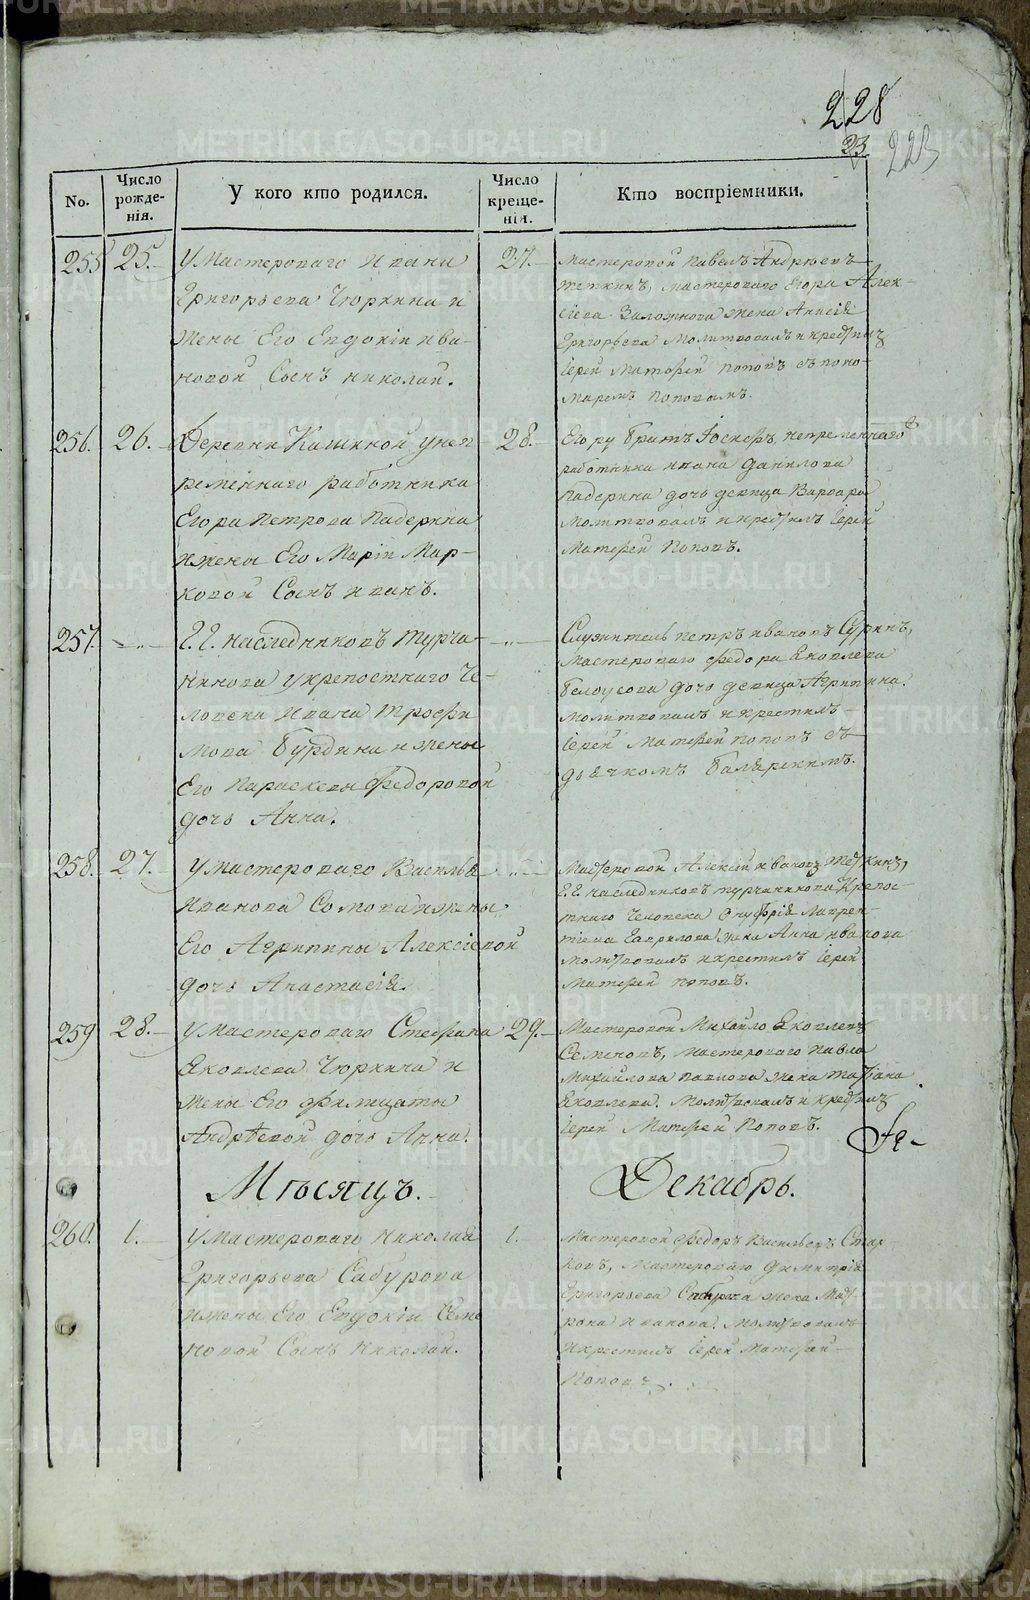 228
23
223
No.
Число рожденія.
У кого кто родился.
Число крещенія.
Кто воспріемники.
255
25.
У Мастероваго Ивана
Григорьева Чюркина и
жены Его Евдокіи Ива-
новой Сынъ Николай.
27.
Мастеровой Павелъ Андрѣевъ
мастероваго Егора Алек-
сіева жена Анисія
Григорьева Молитвовалъ и
Іерей Матфей Поповъ съ поно-
маремъ Поповымъ.
256.
26.
Деревни Кашиной у неп
ременнаго работника
Егора Петрова Падерина
и жены Его Маріи Мар-
ковой Сынъ Иванъ.
28.
Егору братъ Іосифъ, непременнаго
работника Ивана Данилова
Падерина дочь девица Варвара
Молитвовалъ и Іерей
Матфей Поповъ.
257.
Г.Г. наследниковъ Турча-
нинова у крепостнаго Че-
ловека Ивана Трофи
мова Бурдина и жены
Его Параскевы Федоровой
дочь Анна.
Служитель Петръ Ивановъ Суринъ,
мастероваго Федора Яковлева
Белоусова дочь девица Агрипина.
молитвовалъ и крестилъ
Іерей Матфей Поповъ съ
дьячкомъ
258.
27.
У Мастероваго Василья
Иванова Сомова и жены
Его Агрипины Алексіевой
дочь Анастасія.
Мастеровой Алексій Ивановъ
Г.Г. наследниковъ Турчанинова Крепос-
тнаго Человека Онуфрія Лаврен-
тіева Гаврилова жена Анна Иванова
молитвовалъ и крестилъ Іерей
Матфей Поповъ.
259
28.
У Мастероваго Стефана
Яковлева Чюркина и
жены Его Филицаты
Андрѣевой дочь Анна.
29.
Мастеровой Михайло Яковлевъ
Семеновъ, мастероваго Павла
Михайлова Павлова жена Татіана
Яковлева. Молитвовалъ и крестилъ
Іерей Матфей Поповъ.
Мѣсяцъ.
Декабрь.
260.
1.
У Мастероваго Николая
Григорьева Сабурова
и жены Его Евдокіи Семе
новой Сынъ Николай.
1.
Мастеровой Федоръ Васильевъ Стар-
ковъ, Мастероваго Димитрія
Григорьева Сабурова жена Мат-
рона Иванова. Молитвовалъ
и крестилъ Іерей Матфей
Поповъ.
METRIKI.GASO-URAL.RU